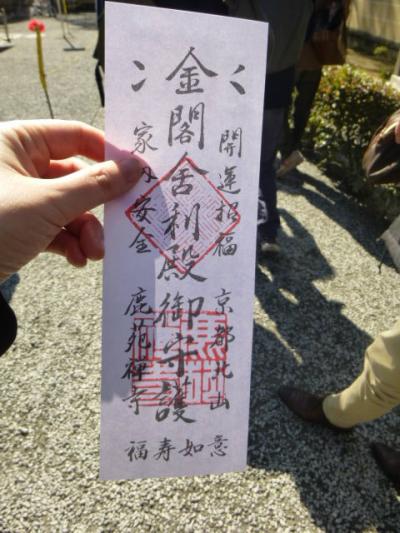 開運招福 京都北山
金閣舎利殿御守護
家内安全 鹿苑禅寺
如意
福寿